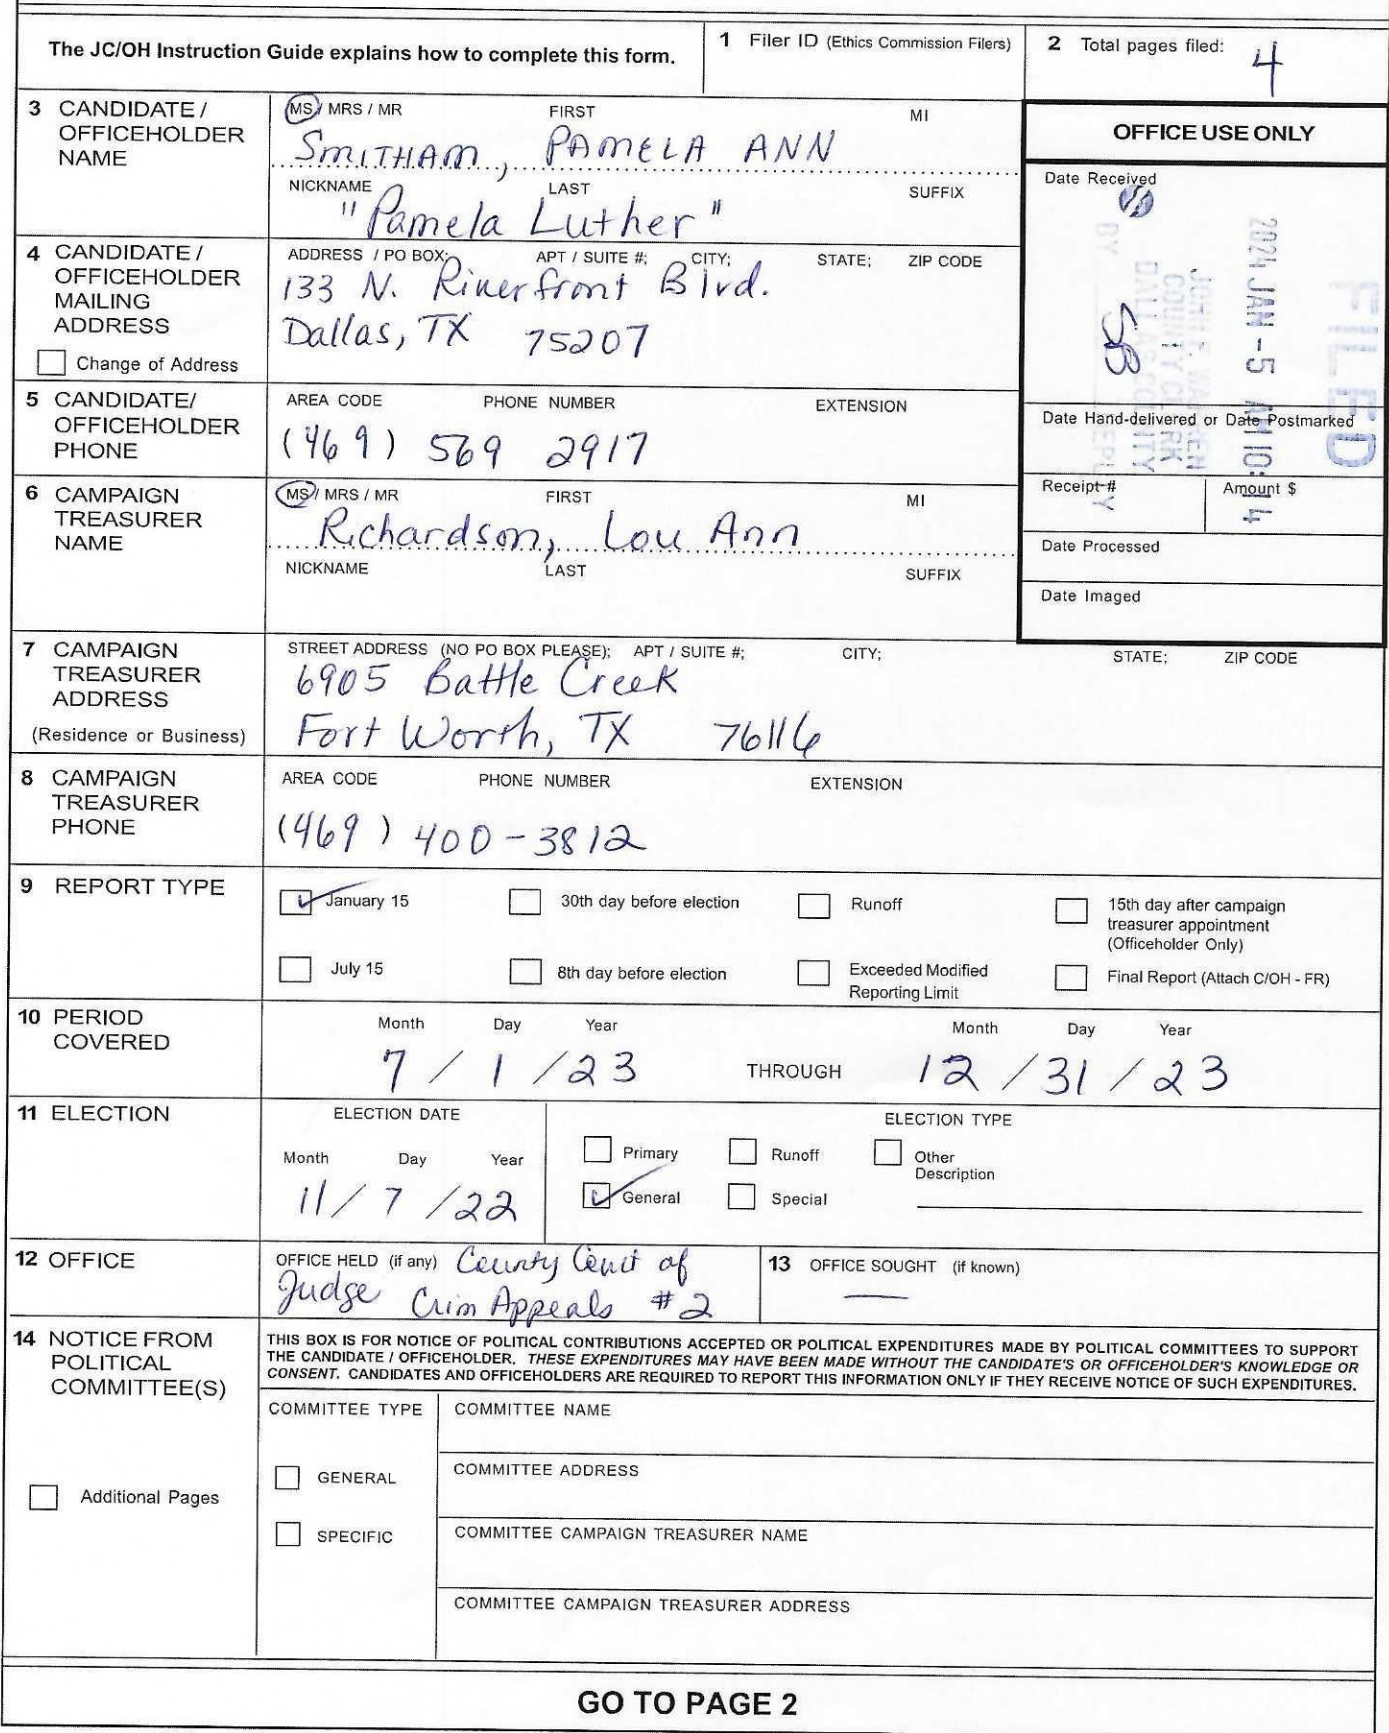 The JC/OH Instruction Guide explains how to complete this form.
1 Filer ID (Ethics Commission Filers)
2 Total pages filed: 4
3 CANDIDATE / OFFICEHOLDER NAME
MS / MRS / MR FIRST MI
SMITHAM, PAMELA ANN
NICKNAME LAST SUFFIX
"Pamela Luther"
OFFICE USE ONLY
Date Received
FILED
2024 JAN -5 AM 10:14
COUNTY CLERK
DALLAS COUNTY
BY SB DEPUTY
Date Hand-delivered or Date Postmarked
Receipt # Amount $
Date Processed
Date Imaged
4 CANDIDATE / OFFICEHOLDER MAILING ADDRESS
Change of Address
ADDRESS / PO BOX; APT / SUITE #; CITY; STATE; ZIP CODE
133 N. Riverfront Blvd.
Dallas, TX 75207
5 CANDIDATE/ OFFICEHOLDER PHONE
AREA CODE PHONE NUMBER EXTENSION
(469) 569 2917
6 CAMPAIGN TREASURER NAME
MS / MRS / MR FIRST MI
Richardson, Lou Ann
NICKNAME LAST SUFFIX
7 CAMPAIGN TREASURER ADDRESS
(Residence or Business)
STREET ADDRESS (NO PO BOX PLEASE); APT / SUITE #; CITY; STATE; ZIP CODE
6905 Battle Creek
Fort Worth, TX 76116
8 CAMPAIGN TREASURER PHONE
AREA CODE PHONE NUMBER EXTENSION
(469) 400-3812
9 REPORT TYPE
January 15
30th day before election
Runoff
15th day after campaign treasurer appointment (Officeholder Only)
July 15
8th day before election
Exceeded Modified Reporting Limit
Final Report (Attach C/OH - FR)
10 PERIOD COVERED
Month Day Year Month Day Year
7 / 1 / 23 THROUGH 12 / 31 / 23
11 ELECTION
ELECTION DATE
Month Day Year
11 / 7 / 22
ELECTION TYPE
Primary
Runoff
Other Description
General
Special
12 OFFICE
OFFICE HELD (if any) County Court of
Judge Crim Appeals #2
13 OFFICE SOUGHT (if known)
—
14 NOTICE FROM POLITICAL COMMITTEE(S)
THIS BOX IS FOR NOTICE OF POLITICAL CONTRIBUTIONS ACCEPTED OR POLITICAL EXPENDITURES MADE BY POLITICAL COMMITTEES TO SUPPORT
THE CANDIDATE / OFFICEHOLDER. THESE EXPENDITURES MAY HAVE BEEN MADE WITHOUT THE CANDIDATE'S OR OFFICEHOLDER'S KNOWLEDGE OR
CONSENT. CANDIDATES AND OFFICEHOLDERS ARE REQUIRED TO REPORT THIS INFORMATION ONLY IF THEY RECEIVE NOTICE OF SUCH EXPENDITURES.
Additional Pages
COMMITTEE TYPE
GENERAL
SPECIFIC
COMMITTEE NAME
COMMITTEE ADDRESS
COMMITTEE CAMPAIGN TREASURER NAME
COMMITTEE CAMPAIGN TREASURER ADDRESS
GO TO PAGE 2